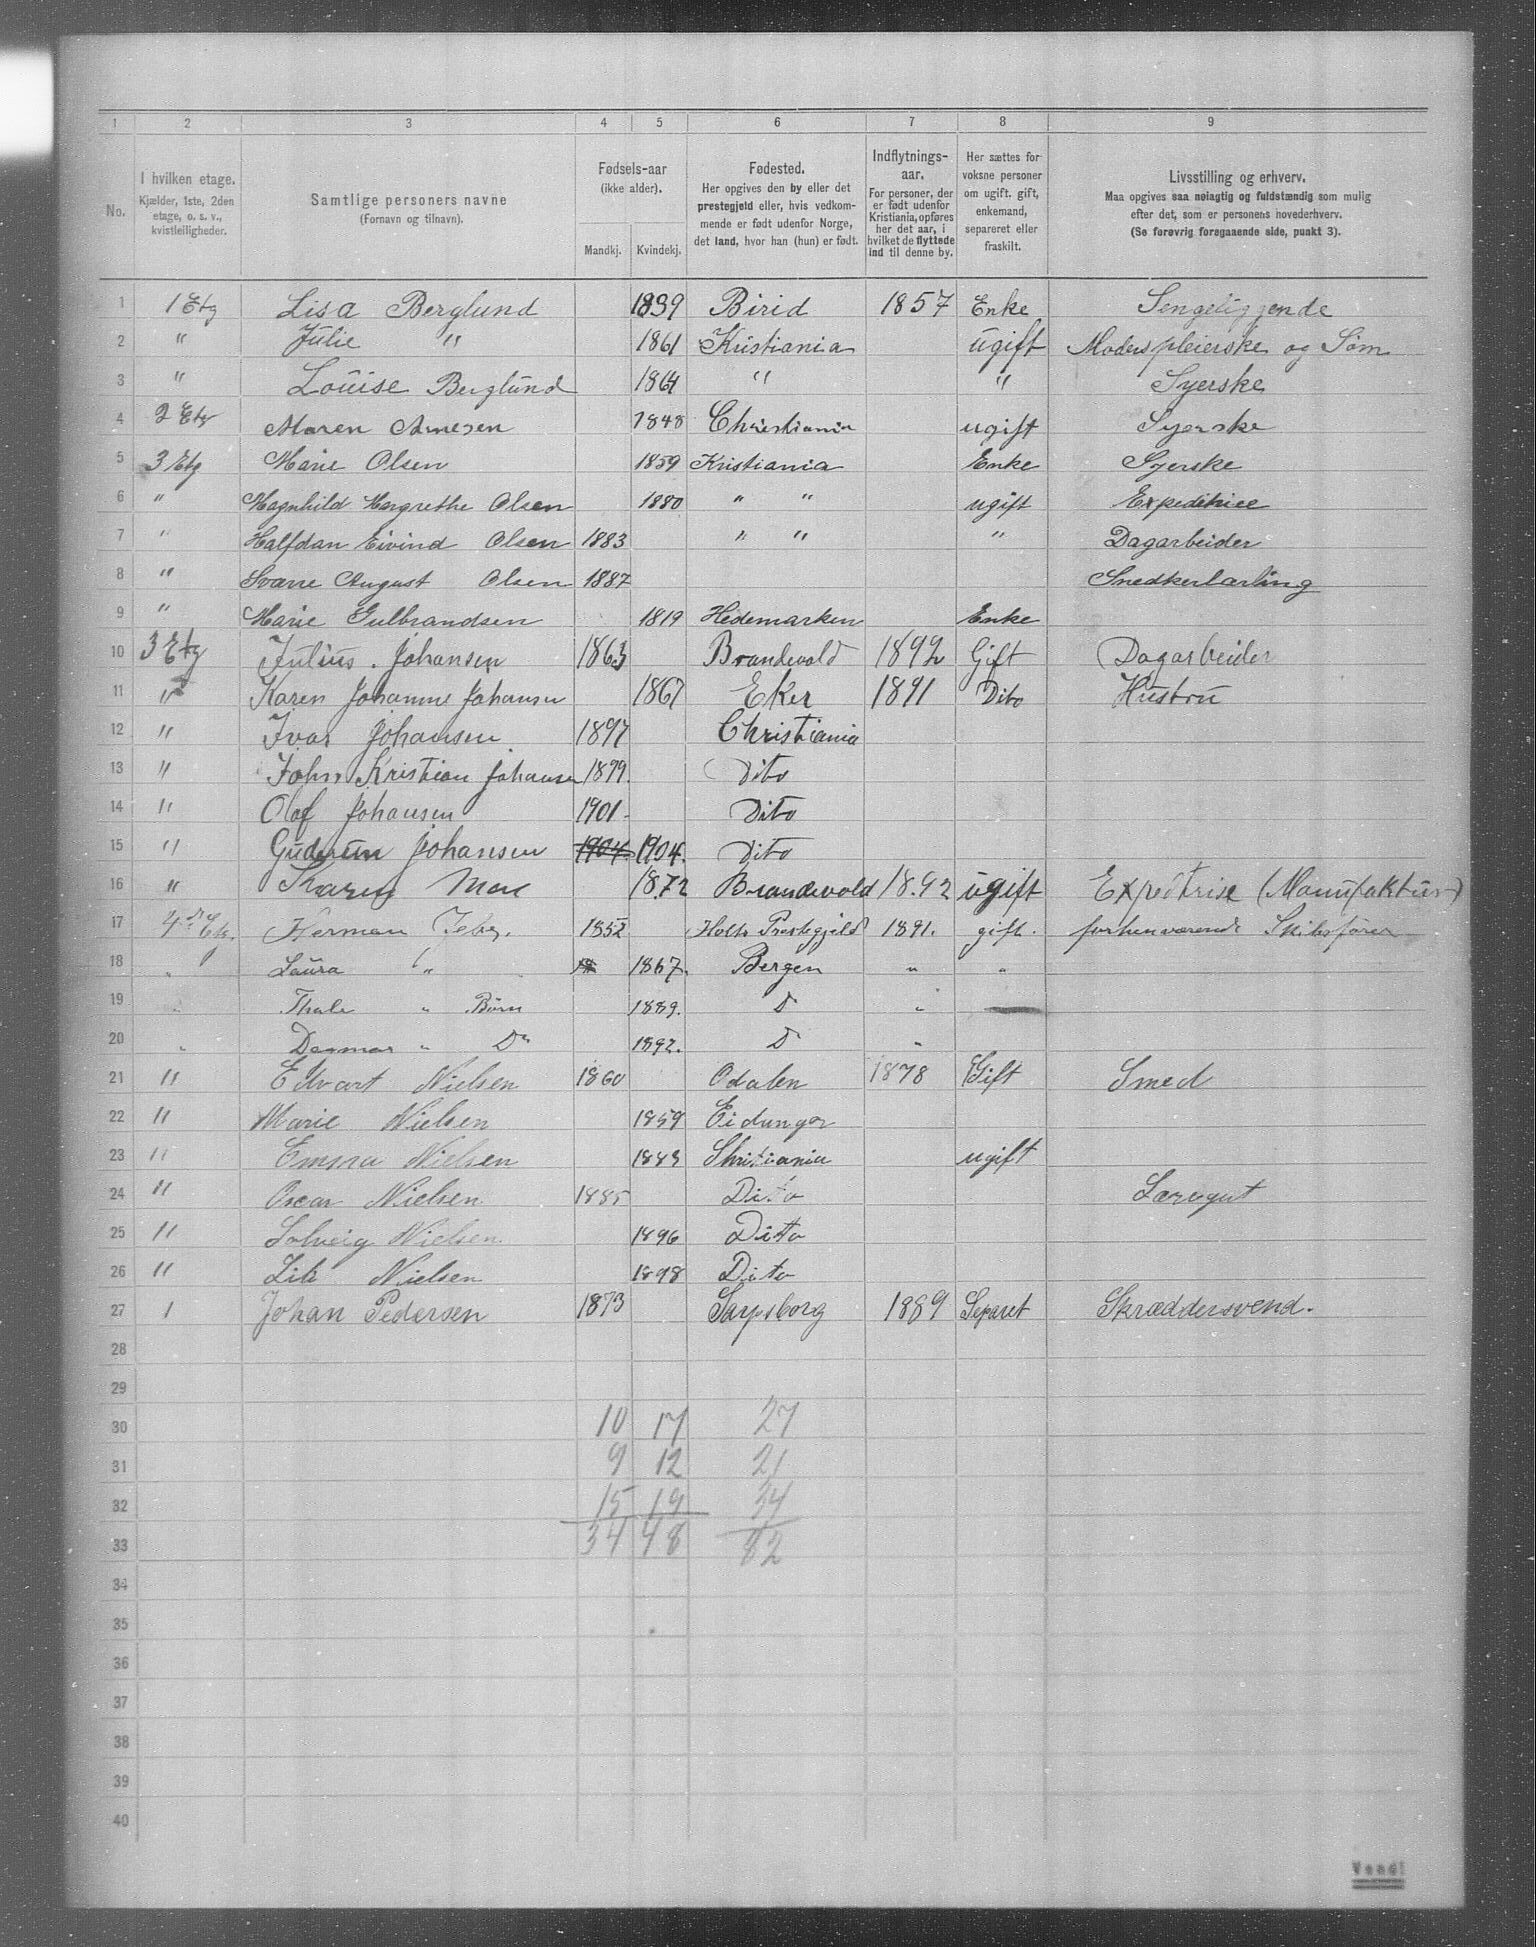 1 2 3 4 5 6 7 8 9
No.
I hvilken etage.
Kjælder, 1ste, 2den
etage, o. s. v.,
kvistleiligheder.
Samtlige personers navne
(Fornavn og tilnavn).
Fødsels-aar
(ikke alder).
Mandkj. Kvindekj.
Fødested.
Her opgives den by eller det
prestegjeld eller, hvis vedkom-
mende er født udenfor Norge,
det land, hvor han (hun) er født.
Indflytnings-
aar.
For personer, der
er født udenfor
Kristiania, opføres
her det aar, i
hvilket de flyttede
ind til denne by.
Her sættes for
voksne personer
om ugift, gift,
enkemand,
separeret eller
fraskilt.
Livsstilling og erhverv.
Maa opgives saa nøiagtig og fuldstændig som mulig
efter det, som er personens hovederhverv.
(Se forøvrig foregaaende side, punkt 3).
1 1 Etg Lisa Berglund 1839 Birid 1857 Enke Sengeliggende
2 " Julie " 1861 Kristiania ugift Moders pleierske og Søm
3 " Louise Berglund 1864 " " Syerske
4 2 Etg Maren Arnesen 1848 Christiania ugift Syerske
5 3 Etg Marie Olsen 1859 Kristiania Enke Syerske
6 " Magnhild Margrethe Olsen 1880 " " ugift Expeditrice
7 " Halfdan Eivind Olsen 1883 " " " Dagarbeider
8 " Svane August Olsen 1887 Snedkerlærling
9 " Marie Gulbrandsen 1819 Hedemarken Enke
10 3 Etg Julius Johansen 1863 Brandevold 1892 Gift Dagarbeider
11 " Karen Johanne Johansen 1867 Eker 1891 Dito Hustru
12 " Ivar Johansen 1897 Christiania
13 " John Kristian Johansen 1899. Dito
14 " Olaf Johansen 1901- Dito
15 " Guderun Johansen 1904 1904. Dito
16 " Karen Moe 1872 Brandevold 18.92 ugift Expedtrise (Manufaktur)
17 4de Etg. Herman 1852 Holts Prestegjeld 1891. gift. forhenværende Skibsfører
18 " Laura " 1867. Bergen " "
19 " Thale " Børn 1889. D "
20 " Dagmar " Do 1892. D "
21 " Edvart Nielsen 1860 Odalen 1878 Gift Smed
22 " Marie Nielsen 1859 Eidunger
23 " Emma Nielsen 1883 Shristiania ugift
24 " Oscar Nielsen 1885 Dito Læregut
25 " Solveig Nielsen 1896 Dito
26 " Lili Nielsen 1898 Dito
27 1 Johan Pedersen 1873 Sarpsborg 1889 Separet Skræddersvend.
28
29
30 10 17 27
31 9 12 21
32 15 19 34
33 34 48 82
34
35
36
37
38
39
40
Vend!